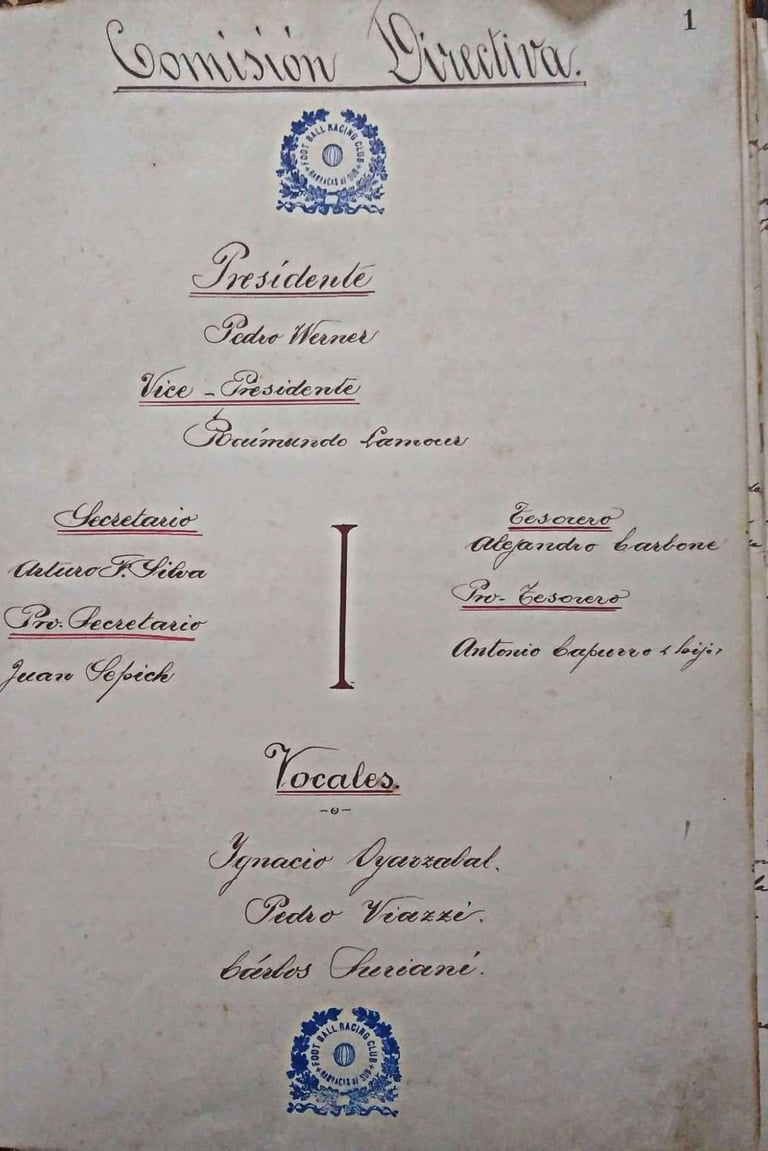 1
Comisión Directiva.
FOOT BALL RACING CLUB
BARRACAS al SUD
Presidente
Pedro Werner
Vice - Presidente
Raimundo Lamour
Secretario
Arturo F. Silva
Pro. Secretario
Juan Sepich
Tesorero
Alejandro Carbone
Pro- Tesorero
Antonio Capurro (hijo)
Vocales.
-o-
Ygnacio Oyarzabal.
Pedro Viazzi.
Cárlos Suriani.
FOOT BALL RACING CLUB
BARRACAS al SUD